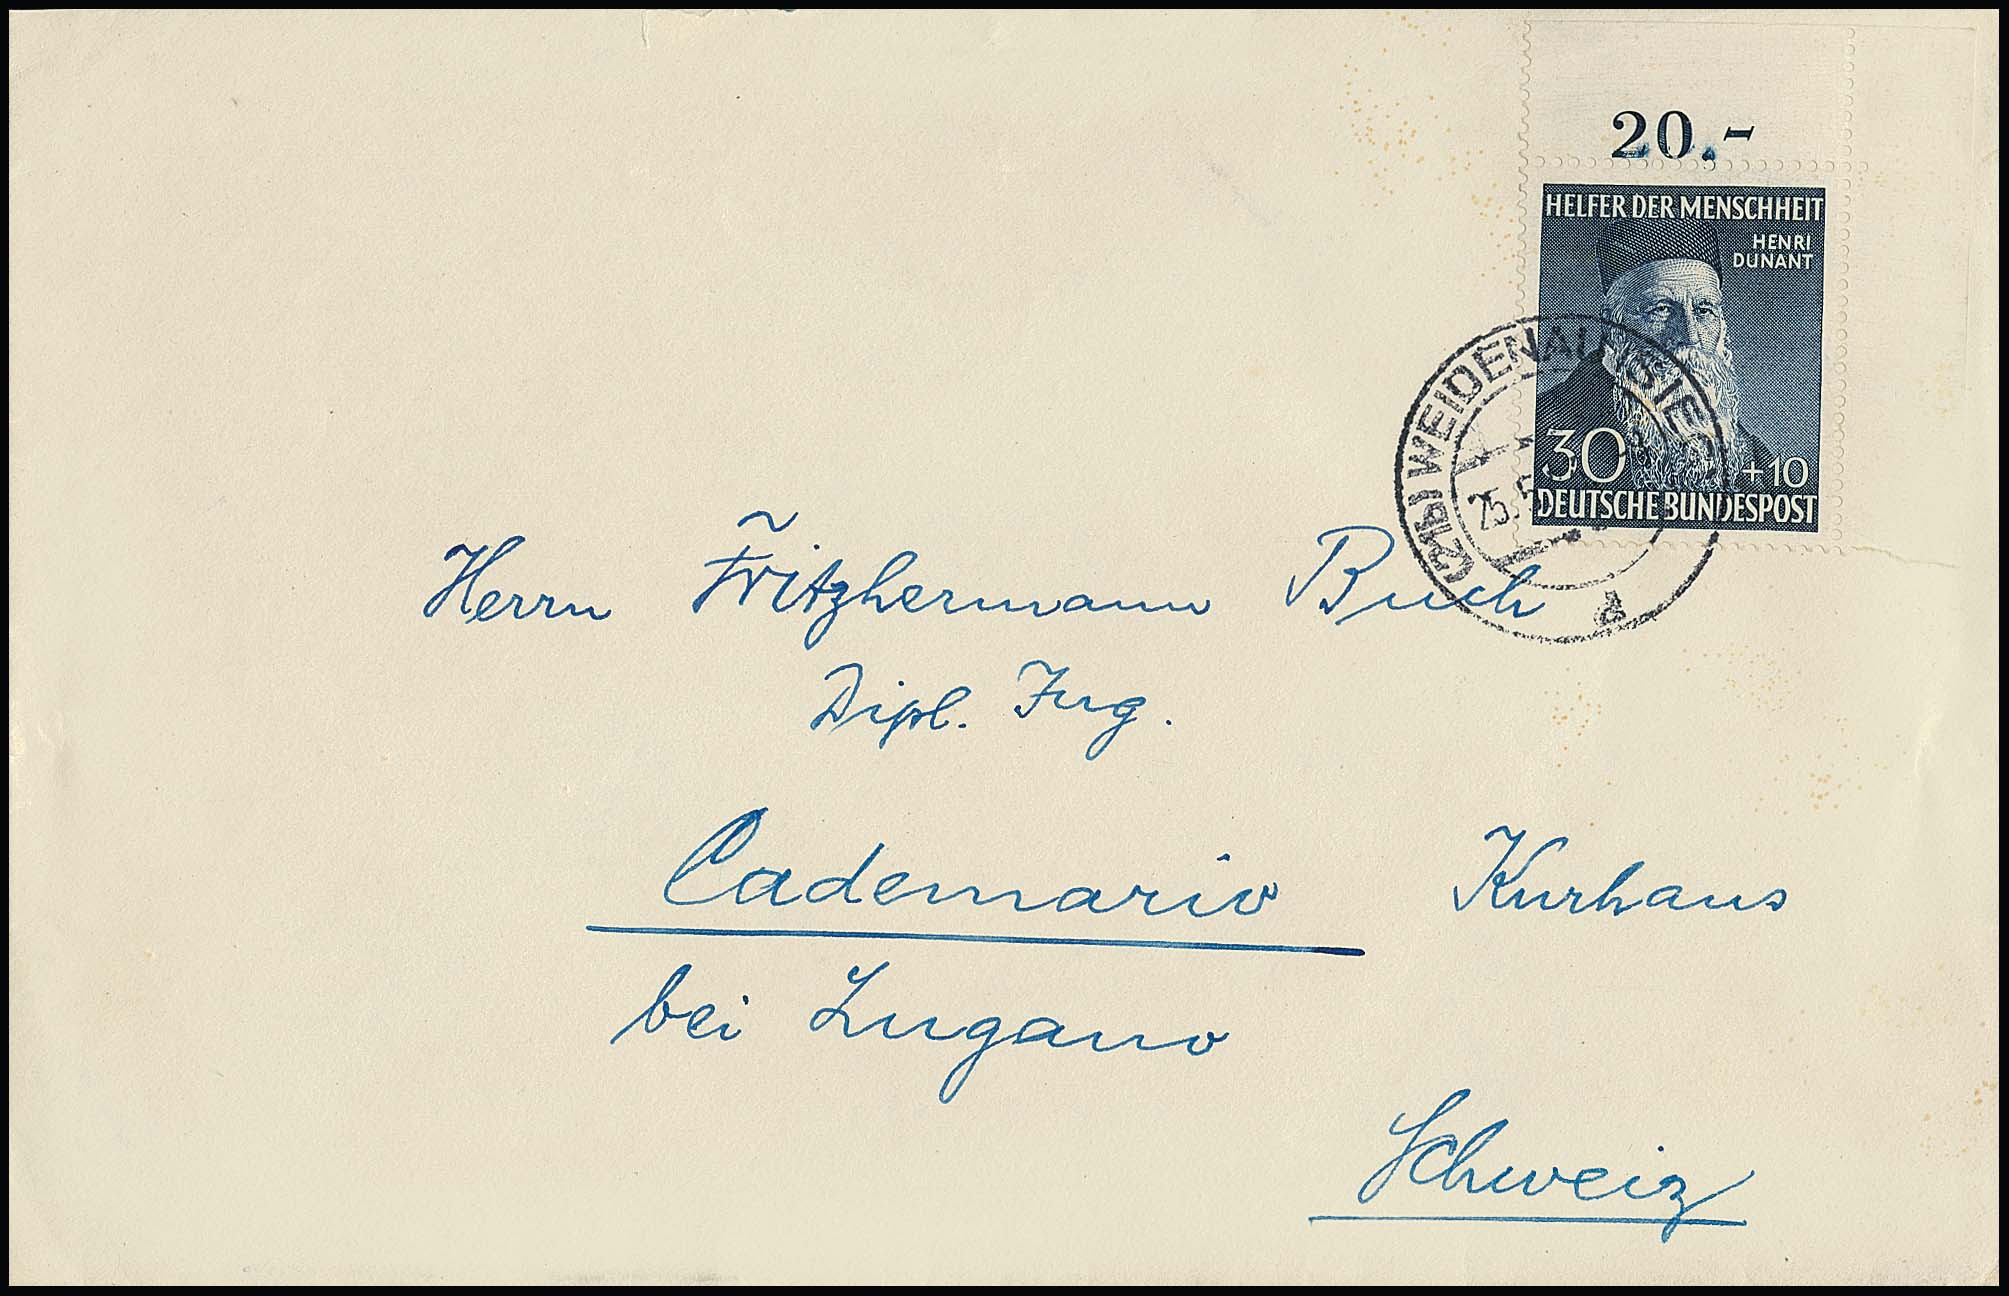 20.-
HELFER DER MENSCHHEIT
HENRI
DUNANT
30 +10
DEUTSCHE BUNDESPOST
(21b) WEIDENAU (SIEG)
25.
a
Herrn Fritzhermann Buch
Dipl. Ing.
Cademario Kurhaus
bei Lugano
Schweiz